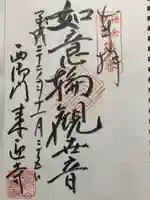 奉拝
如意輪観世音
平成二十八年十一月二十五日
西御門 来迎寺